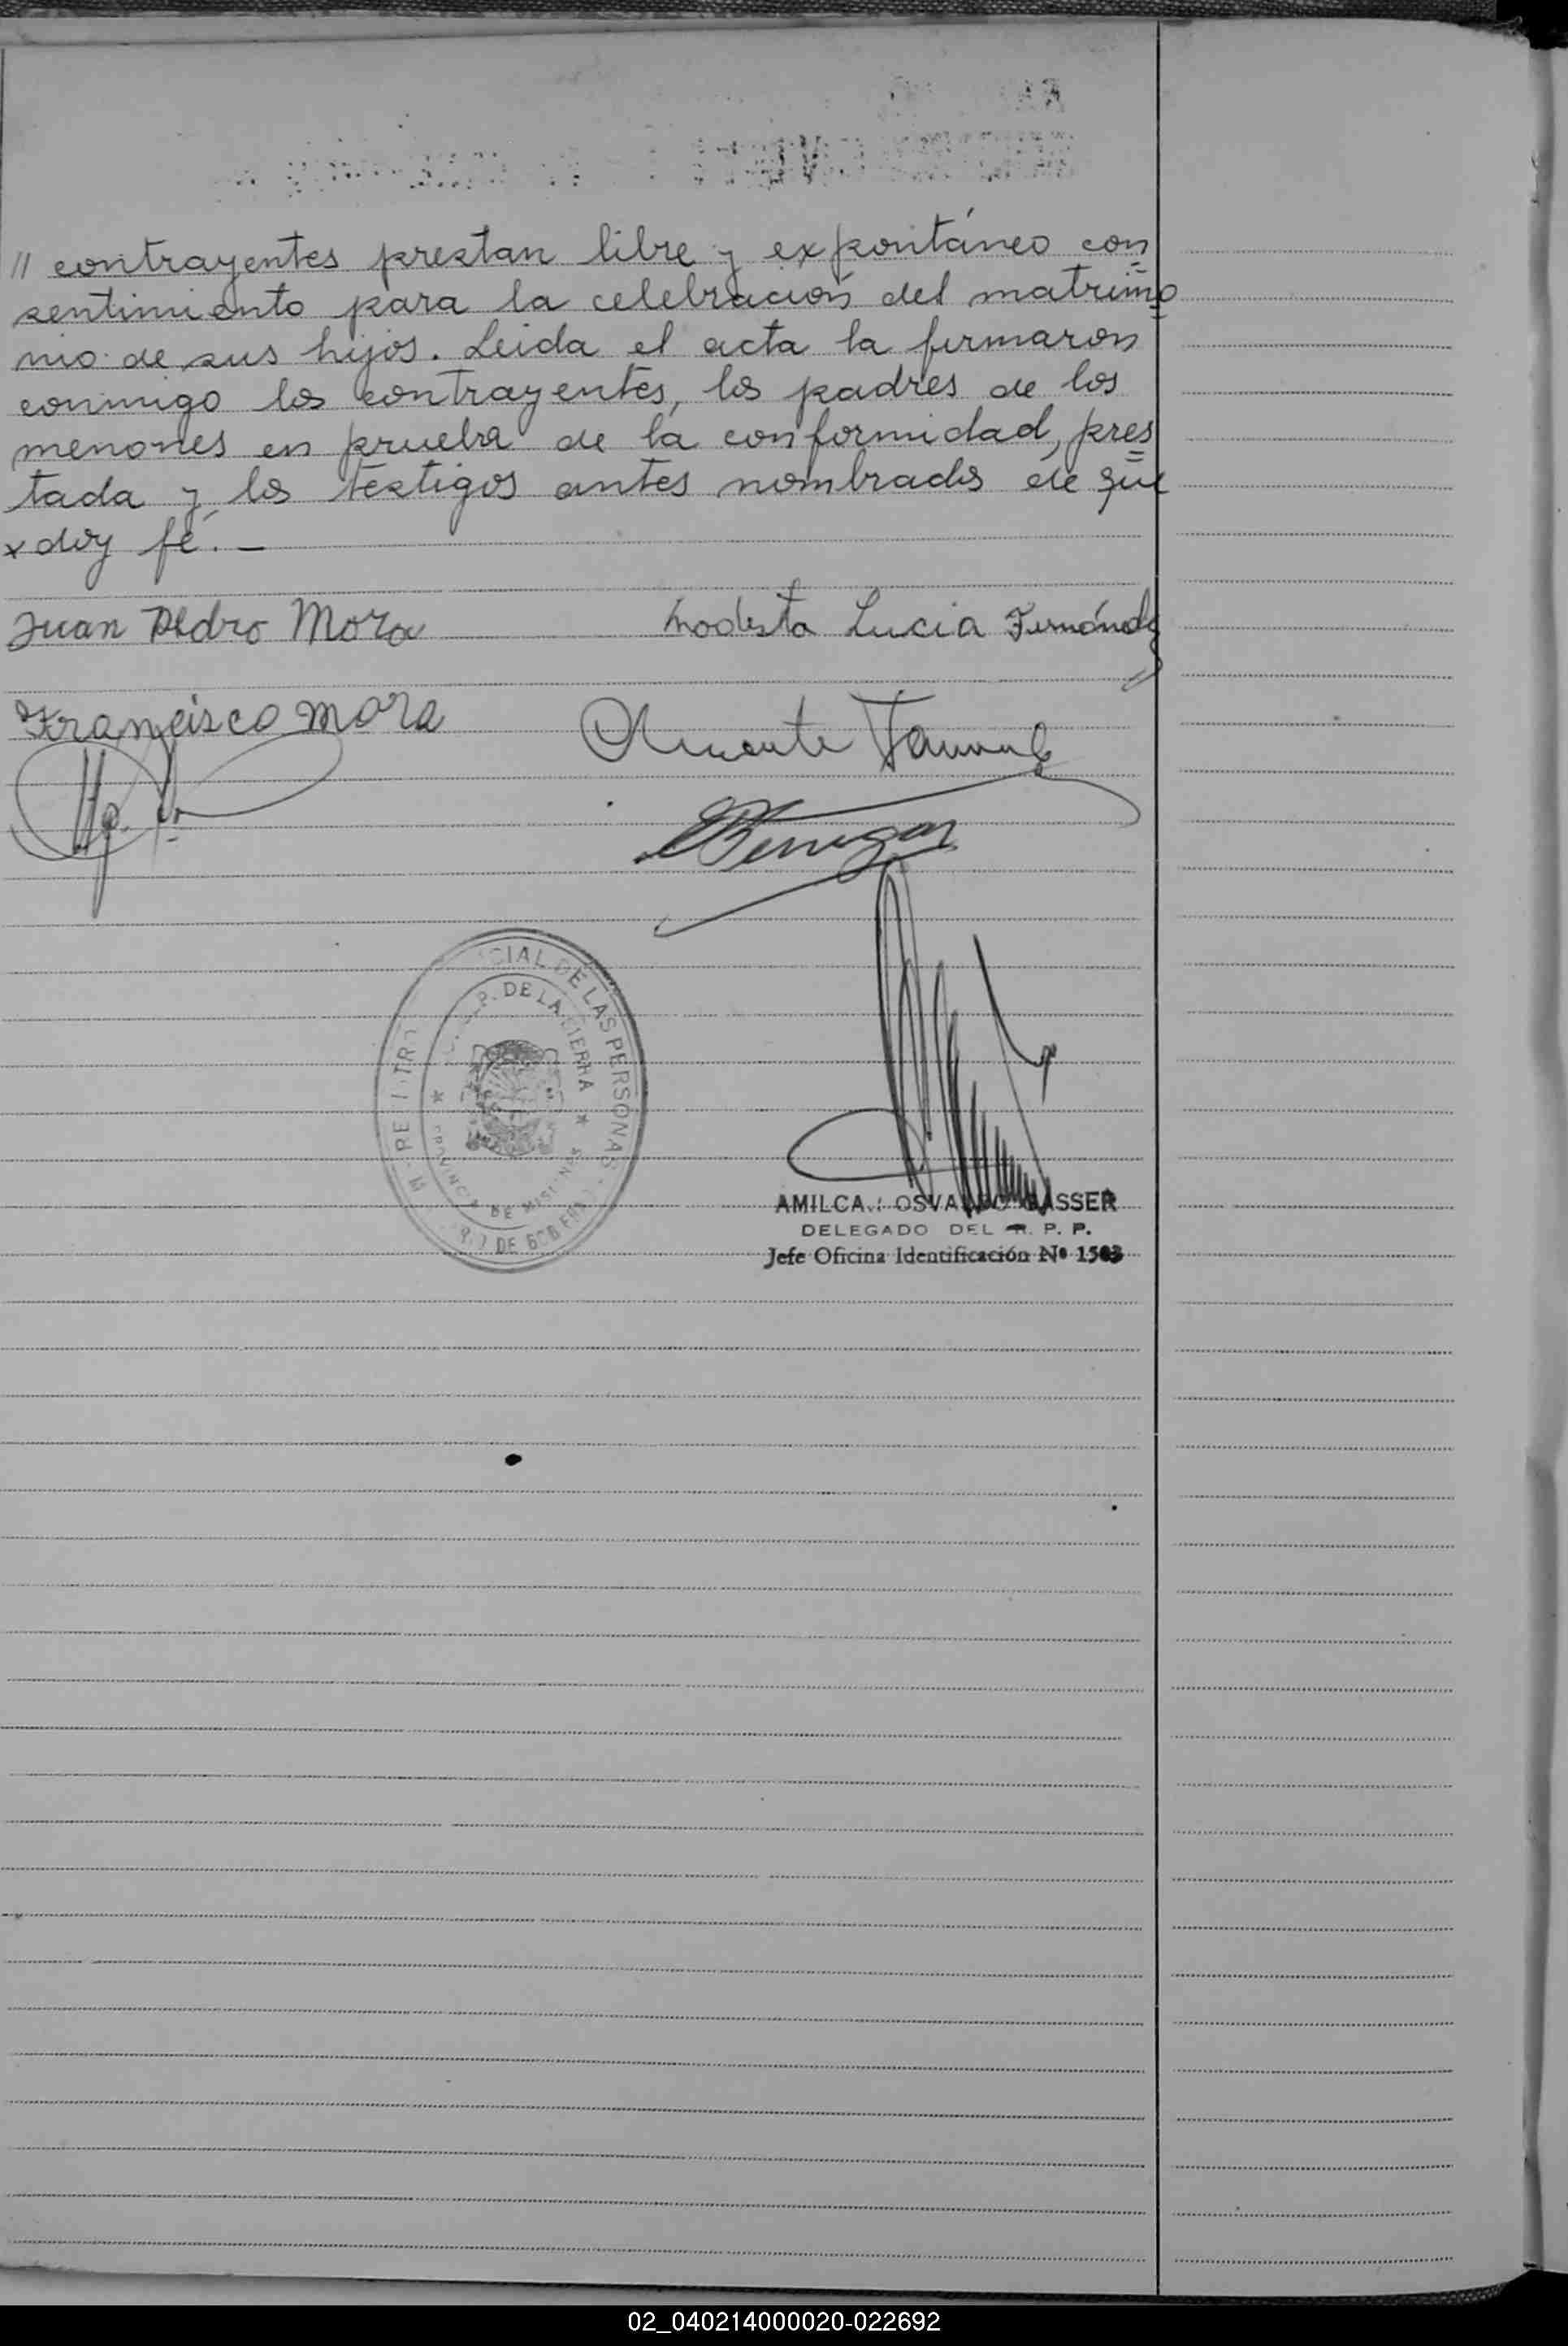 // contrayentes prestan libre y expontáneo con=
sentimiento para la celebración del matrimo=
nio de sus hijos. Leida el acta la firmaron
conmigo los contrayentes, los padres de los
menores en prueba de la conformidad, pres=
tada y los testigos antes nombrados de que
doy fé.—
Juan Pedro Mora Modesta Lucia Fernández
Francisco Mora
CIAL DE LAS PERSONAS
P. DE LA SIERRA
PROVINCIA DE MISIONES
AMILCAR OSVALDO GASSER
DELEGADO DEL R. P. P.
Jefe Oficina Identificación Nº 1503
02_040214000020-022692